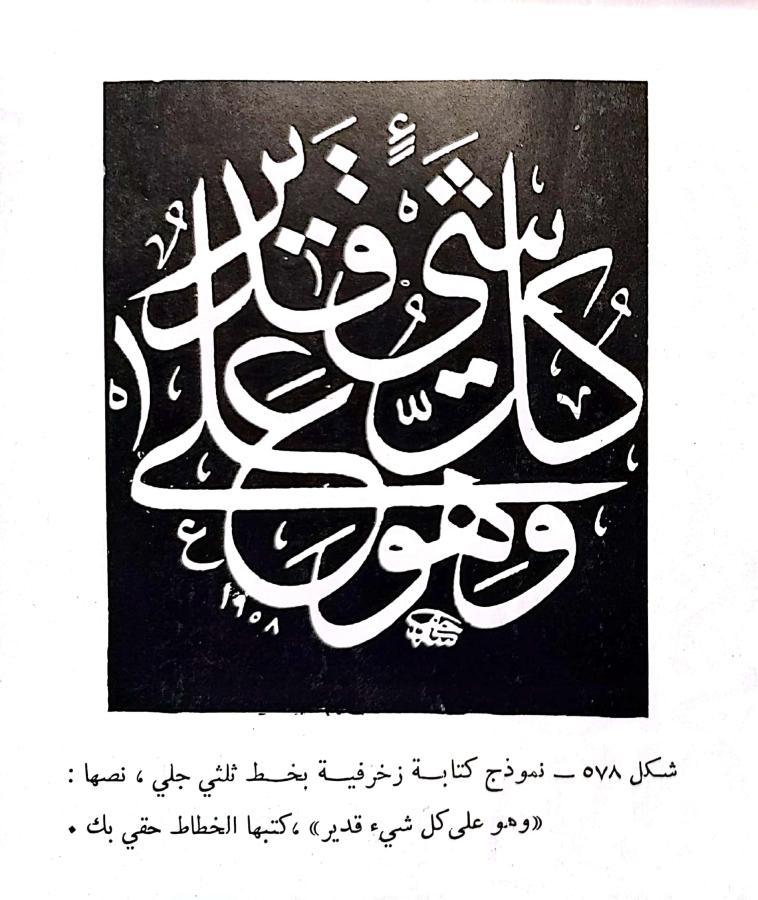 وهو على كل شيء قدير
١٩٥٨
شكل ٥٧٨ ــ نموذج كتابة زخرفية بخط ثلثي جلي ، نصها :
«وهو على كل شيء قدير» ، كتبها الخطاط حقي بك .